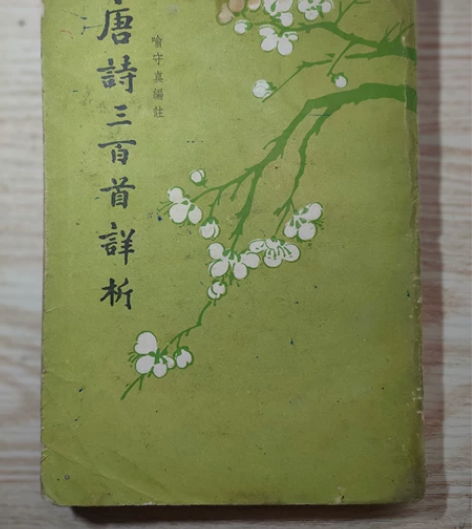 唐詩三百首詳析
喻守真編註